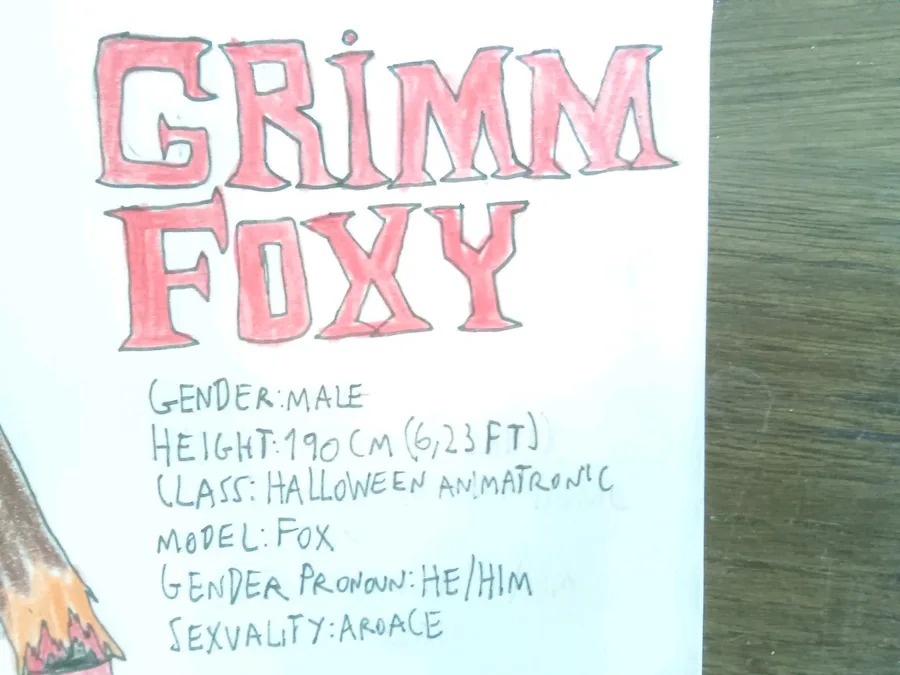 GRiMM
FOXY
GENDER:MALE
HEIGHT:190 CM (6,23 FT)
CLASS: HALLOWEEN ANIMATRONIC
MODEL: FOX
GENDER PRONOUN: HE/HIM
SEXUALITY: AROACE